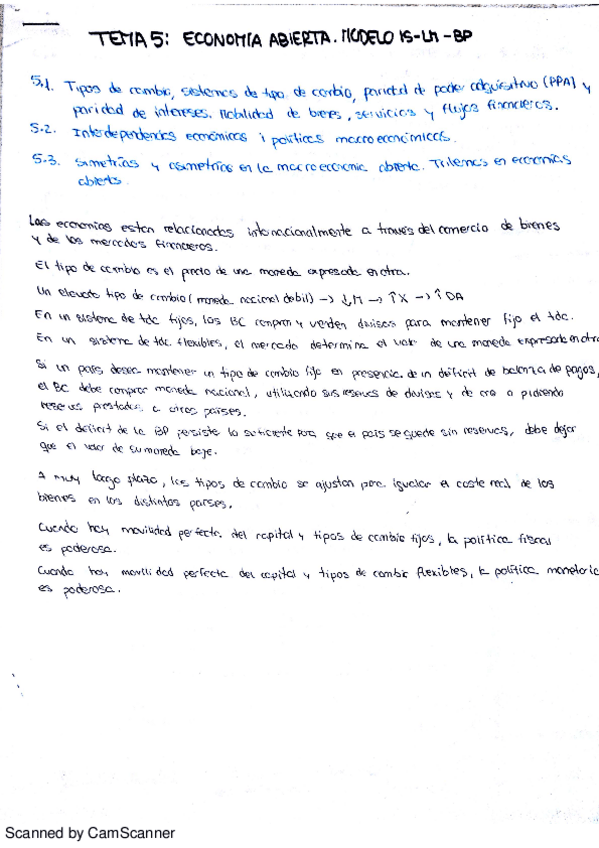 TEMA 5: ECONOMÍA ABIERTA. MODELO IS-LM-BP
5.1. Tipos de cambio, sistemas de tipo de cambio, paridad de poder adquisitivo (PPA) y
paridad de intereses. Mobilidad de bienes, servicios y flujos financieros.
5.2. Interdependencias económicas i políticas macroeconómicas.
5.3. Simetrías y asimetrías en la macroeconomía abierta. Trilemas en economías
abierts.
Las economías estan relacionadas internacionalmente a través del comercio de bienes
y de los mercados financieros.
El tipo de cambio es el precio de una moneda expresada en otra.
Un elevado tipo de cambio (moneda nacional debil) -> ↓M -> ↑X -> ↑DA
En un sistema de tdc fijos, los BC compran y venden divisas para mantener fijo el tdc.
En un sistema de tdc flexibles, el mercado determina el valor de una moneda expresada en otra
Si un país desea mantener un tipo de cambio fijo en presencia de un déficit de balanza de pagos,
el BC debe comprar moneda nacional, utilizando sus reservas de divisas y de oro o pidiendo
reservas prestadas a otros países.
Si el déficit de la BP persiste lo suficiente para que el país se quede sin reservas, debe dejar
que el valor de su moneda baje.
A muy largo plazo, los tipos de cambio se ajustan para igualar el coste real de los
bienes en los distintos países.
Cuando hay movilidad perfecta del capital y tipos de cambio fijos, la política fiscal
es poderosa.
Cuando hay movilidad perfecta del capital y tipos de cambio flexibles, la política monetaria
es poderosa.
Scanned by CamScanner